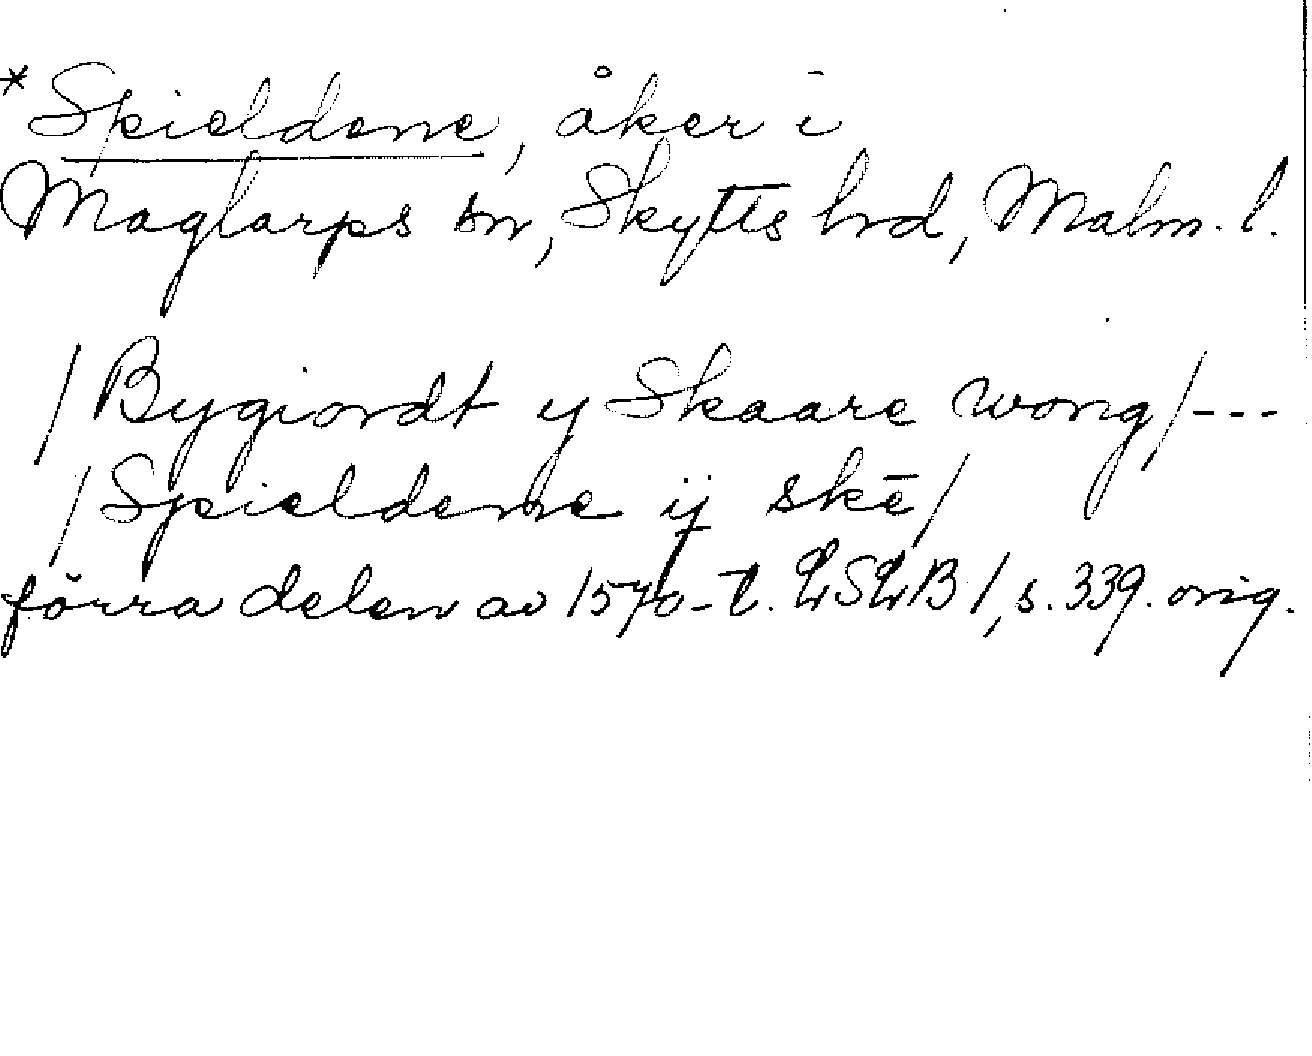 *Spieldene, åker i
Maglarps sn, Skytts hd, Malm. l.
/Bygiordt y Skaare wong/---
/Spieldene ij skē/
förra delen av 1570-t. LSLB 1, s. 339. orig.